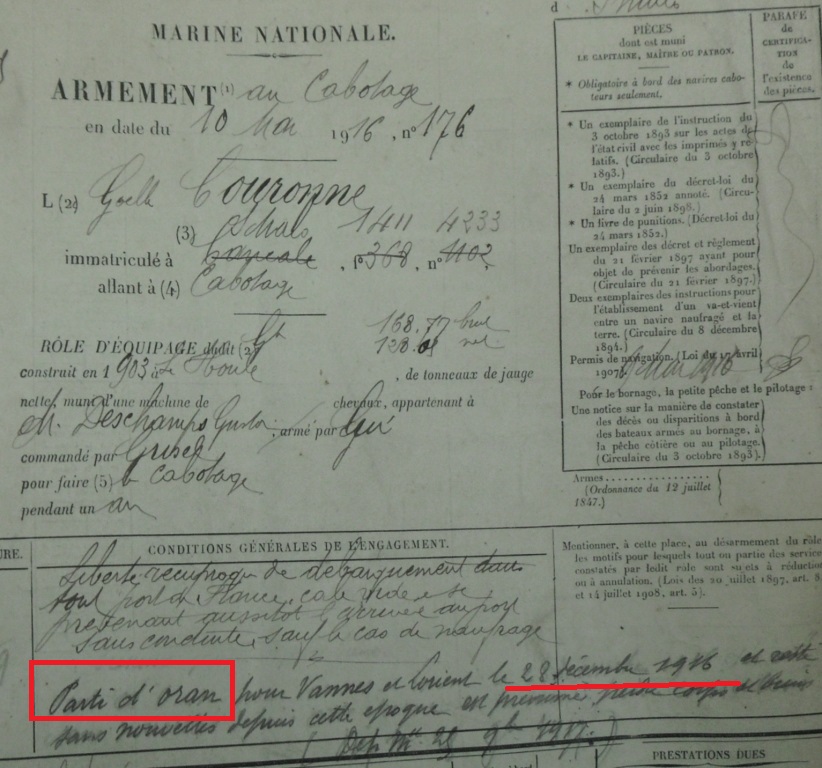 MARINE NATIONALE.
ARMEMENT (1) au Cabotage
en date du 10 Mai 1916, n° 176
L (2) Goelle Couronne
(3) 1411 4233
immatriculé à Cancale, f° 368, n° 1102,
allant à (4) Cabotage
168.77 brut
RÔLE D'ÉQUIPAGE dudit (2) 128.01 net
construit en 1903 à La Houle, de tonneaux de jauge
nette, muni d'une machine de chevaux, appartenant à
M. Deschamps Gustor, armé par Lui
commandé par
pour faire (5) le Cabotage
pendant un an
PIÈCES
dont est muni
LE CAPITAINE, MAÎTRE OU PATRON.
* Obligatoire à bord des navires cabo-
teurs seulement.
* Un exemplaire de l'instruction du
3 octobre 1893 sur les actes de
l'état civil avec les imprimés y re-
latifs. (Circulaire du 3 octobre
1893.)
* Un exemplaire du décret-loi du
24 mars 1852 annoté. (Circu-
laire du 2 juin 1898.)
* Un livre de punitions. (Décret-loi du
24 mars 1852.)
Un exemplaire des décret et règlement
du 21 février 1897 ayant pour
objet de prévenir les abordages.
(Circulaire du 21 février 1897.)
Deux exemplaires des instructions pour
l'établissement d'un va-et-vient
entre un navire naufragé et la
terre. (Circulaire du 8 décembre
1894.)
Permis de navigation. (Loi du 17 avril
1907)
Pour le bornage, la petite pêche et le pilotage :
Une notice sur la manière de constater
des décès ou disparitions à bord
des bateaux armés au bornage, à
la pêche côtière ou au pilotage.
(Circulaire du 3 octobre 1893.)
Armes
(Ordonnance du 12 juillet
1847.)
PARAFE
de
CERTIFICA-
TION
de
l'existence
des pièces.
URE.
CONDITIONS GÉNÉRALES DE L'ENGAGEMENT.
Liberté réciproque de débarquement dans
tout port de France, cale vide et se
prévenant aussitôt l'arrivée au port
sans conduite, sauf le cas de naufrage
Parti d'oran pour Vannes et Lorient le 28 décembre 1916 et resté
sans nouvelles depuis cette époque est présumé perdu corps et biens
(Dep. Mle 25 9bre 1917.)
Mentionner, à cette place, au désarmement du rôle
les motifs pour lesquels tout ou partie des service
constatés par ledit rôle sont sujets à réduction
ou à annulation. (Lois des 20 juillet 1897, art. 8,
et 14 juillet 1908, art. 5).
PRESTATIONS DUES